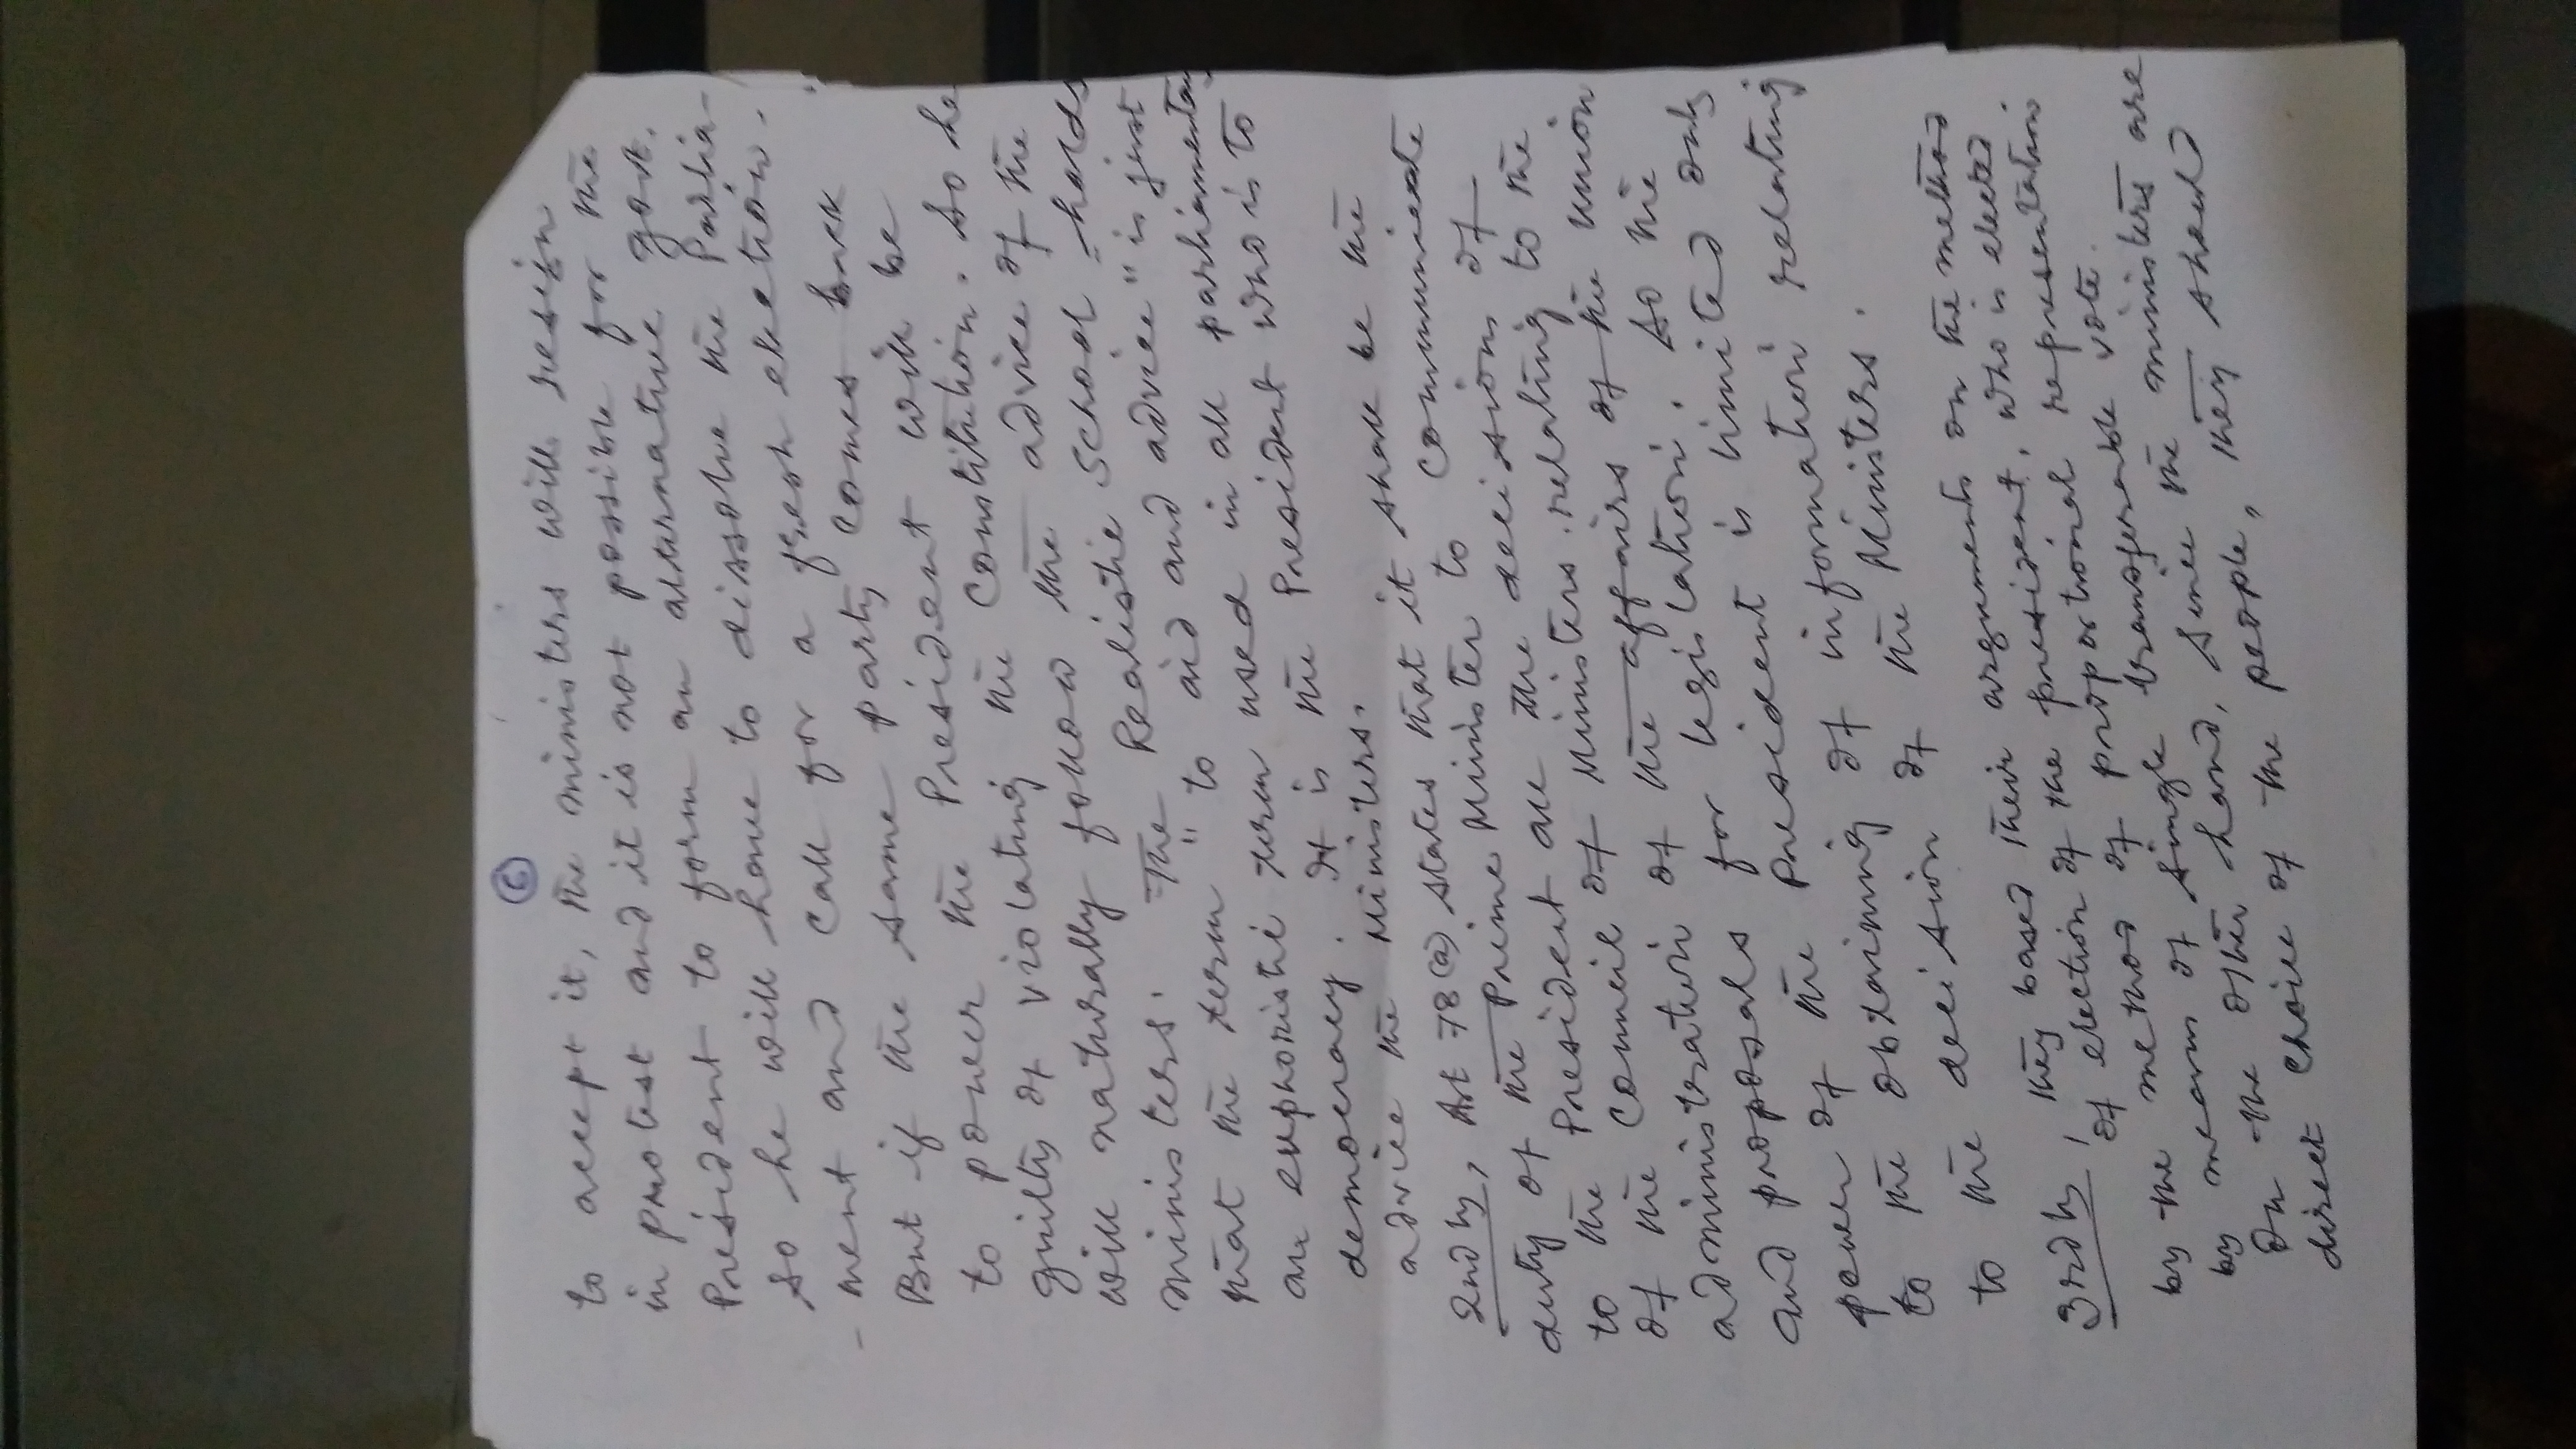 6
to accept it, the ministers will resign
in protest and it is not possible for the
President to form an alternative govt.
so he will have to dissolve the Parlia-
-ment and call for a fresh election.
But if the same party comes back
to power the President will be
guilty of violating the Constitution. So he
will naturally follow the advice of the
ministers. The Realistic School holds
that the term "to aid and advice" is just
an euphoristic term used in all parliamentary
democracy. It is the President who is to
advice the Ministers.
2ndly, Art 78(a) states that it shall be the
duty of the Prime Minister to communicate
to the President all the decisions of
of the Council of Ministers relating to the
administration of the affairs of the union
and proposals for legislation. So the
power of the President is limited only
to the obtaining of information relating
to the decision of the Ministers.
3rdly, they based their arguments on the method
of election of the president, who is elected
by the method of proportional representation
by means of single transferable vote.
On the other hand, since the ministers are
direct choice of the people, they should